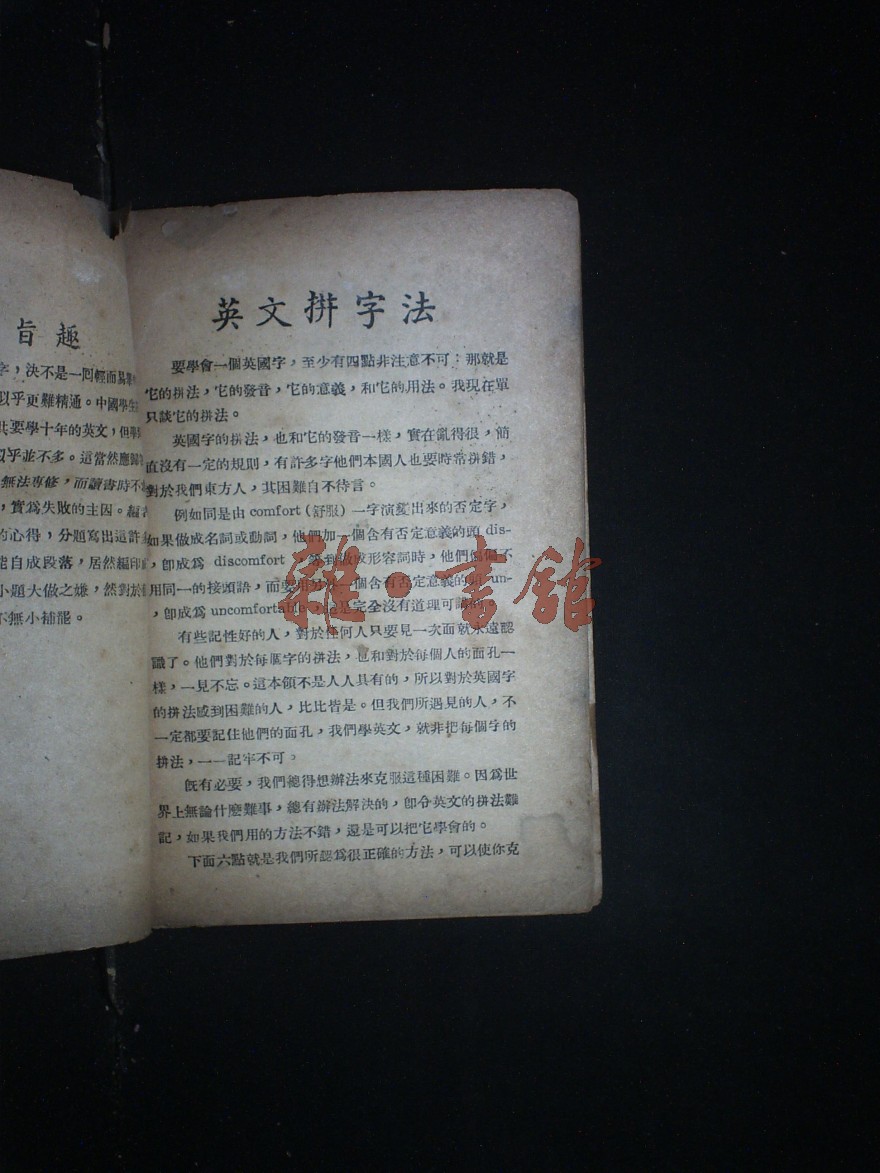 旨趣
字，決不是一囘輕而易舉
似乎更難精通。中國學生
共要學十年的英文，但
似乎並不多。這當然應歸
無法專修，而讀書時不
，實爲失敗的主因。編
的心得，分題寫出這許
能自成段落，居然編印
小題大做之嫌，然對於
不無小補罷。
英文拼字法
要學會一個英國字，至少有四點非注意不可：那就是
它的拼法，它的發音，它的意義，和它的用法。我現在單
只談它的拼法。
英國字的拼法，也和它的發音一樣，實在亂得很，簡
直沒有一定的規則，有許多字他們本國人也要時常拼錯，
對於我們東方人，其困難自不待言。
例如同是由 comfort (舒服) 一字演變出來的否定字，
如果做成名詞或動詞，他們加一個含有否定意義的頭 dis-
，卽成爲 discomfort，等到做成形容詞時，他們偏偏不
用同一的接頭語，而要用另外一個含有否定意義的頭 un-
，卽成爲 uncomfortable，是完全沒有道理可講的。
有些記性好的人，對於任何人只要見一次面就永遠認
識了。他們對於每個字的拼法，也和對於每個人的面孔一
樣，一見不忘。這本領不是人人具有的，所以對於英國字
的拼法感到困難的人，比比皆是。但我們所遇見的人，不
一定都要記住他們的面孔，我們學英文，就非把每個字的
拼法，一一記牢不可。
旣有必要，我們總得想辦法來克服這種困難。因爲世
界上無論什麽難事，總有辦法解決的，卽令英文的拼法難
記，如果我們用的方法不錯，還是可以把它學會的。
下面六點就是我們所認爲很正確的方法，可以使你克
雜·書館